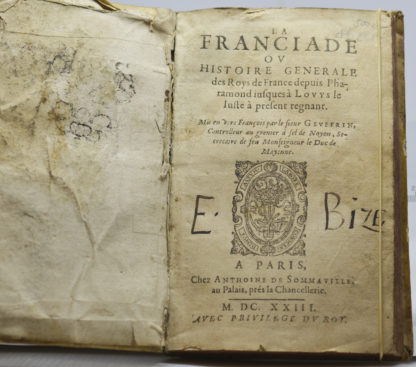 LA
FRANCIADE
OV
HISTOIRE GENERALE
des Roys de France depuis Pha-
ramond iusques à LOVYS le
Iuste à present regnant.
Mis en vers François par le sieur GEVFFRIN,
Controlleur au grenier à sel de Noyon, Se-
cretaire de feu Monseigneur le Duc de
Mayenne.
E. Bize
A PARIS,
Chez ANTHOINE DE SOMMAVILLE,
au Palais, prés la Chancellerie.
M. DC. XXIII.
AVEC PRIVILEGE DV ROY.